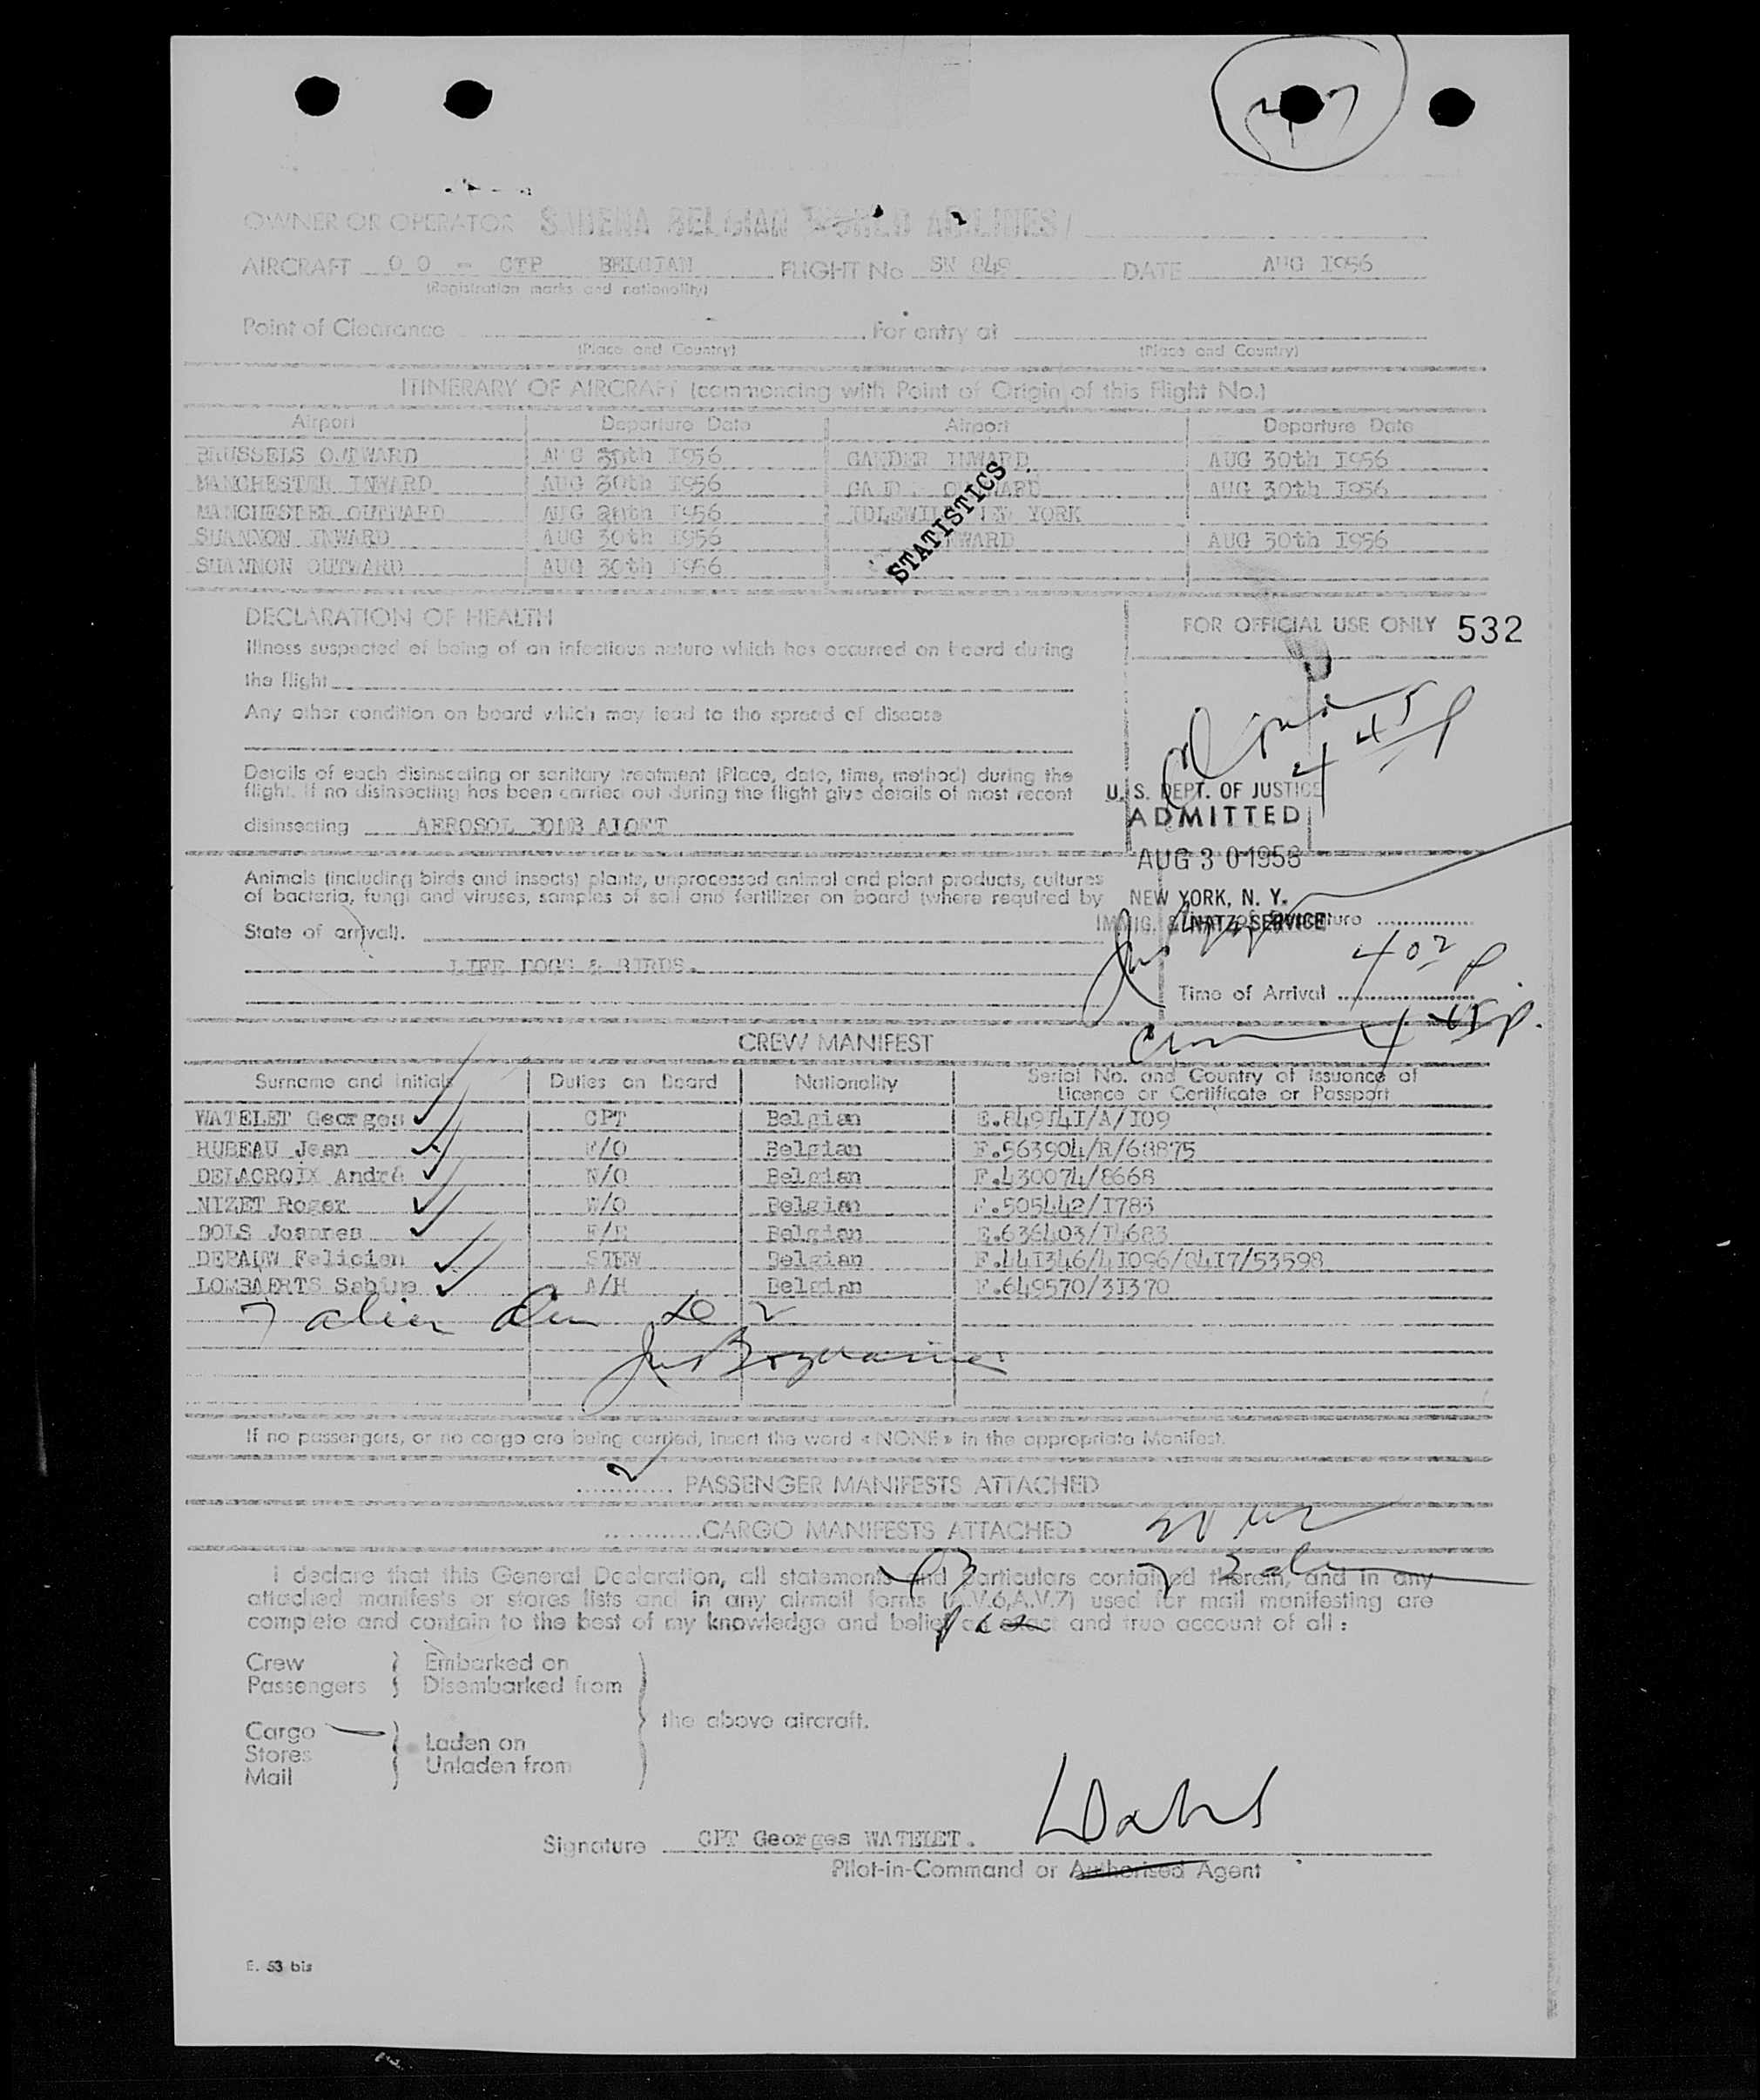 OWNER OR OPERATOR SABENA BELGIAN WORLD AIRLINES/
AIRCRAFT OO - CTP BELGIAN FLIGHT No SN 849 DATE AUG I956
(Registration marks and nationality)
Point of Clearance For entry at
(Place and Country) (Place and Country)
ITINERARY OF AIRCRAFT (commencing with Point of Origin of this Flight No.)
Airport Departure Date Airport Departure Date
BRUSSELS OUTWARD AUG 30th I956 GANDER INWARD AUG 30th I956
MANCHESTER INWARD AUG 30th I956 OUTWARD AUG 30th I956
MANCHESTER OUTWARD AUG 30th I956 IDLEWILD NEW YORK
SHANNON INWARD AUG 30th I956 INWARD AUG 30th I956
SHANNON OUTWARD AUG 30th I956
STATISTICS
DECLARATION OF HEALTH
FOR OFFICIAL USE ONLY 532
Illness suspected of being of an infectious nature which has occurred on board during
the flight
Any other condition on board which may lead to the spread of disease
4 45 p
Details of each disinsecting or sanitary treatment (Place, date, time, method) during the
flight. If no disinsecting has been carried out during the flight give details of most recent
disinsecting AEROSOL BOMB ALOFT
U. S. DEPT. OF JUSTICE
ADMITTED
AUG 30 1956
NEW YORK, N. Y.
IMMIG. & NATZ. SERVICE
Animals (including birds and insects) plants, unprocessed animal and plant products, cultures
of bacteria, fungi and viruses, samples of soil and fertilizer on board (where required by
State of arrival).
LIFE DOGS & BIRDS.
4 02 p
Time of Arrival
4 45 p.
CREW MANIFEST
Surname and Initials Duties on Board Nationality Serial No. and Country of Issuance of
Licence or Certificate or Passport
WATELET Georges CPT Belgian E.849I4I/A/I09
HUBEAU Jean F/O Belgian F.563904/R/68875
DELACROIX André N/O Belgian F.430074/8668
NIZET Roger Belgian F.505442/I783
BOLS Joannes Belgian E.636403/I4683
DEPAUW Felicien STEW Belgian F.44I346/4I096/84I7/53598
LOMBAERTS Sabine A/H Belgian F.649570/3I370
7 alien
If no passengers, or no cargo are being carried, insert the word « NONE » in the appropriate Manifest.
2 PASSENGER MANIFESTS ATTACHED
CARGO MANIFESTS ATTACHED
I declare that this General Declaration, all statements and particulars contained therein, and in any
attached manifests or stores lists and in any airmail forms (A.V.6,A.V.7) used for mail manifesting are
complete and contain to the best of my knowledge and belief an exact and true account of all :
pax
Crew Embarked on
Passengers Disembarked from
the above aircraft.
Cargo Laden on
Stores Unladen from
Mail
Signature CPT Georges WATELET.
Pilot-in-Command or Authorised Agent
E. 53 bis